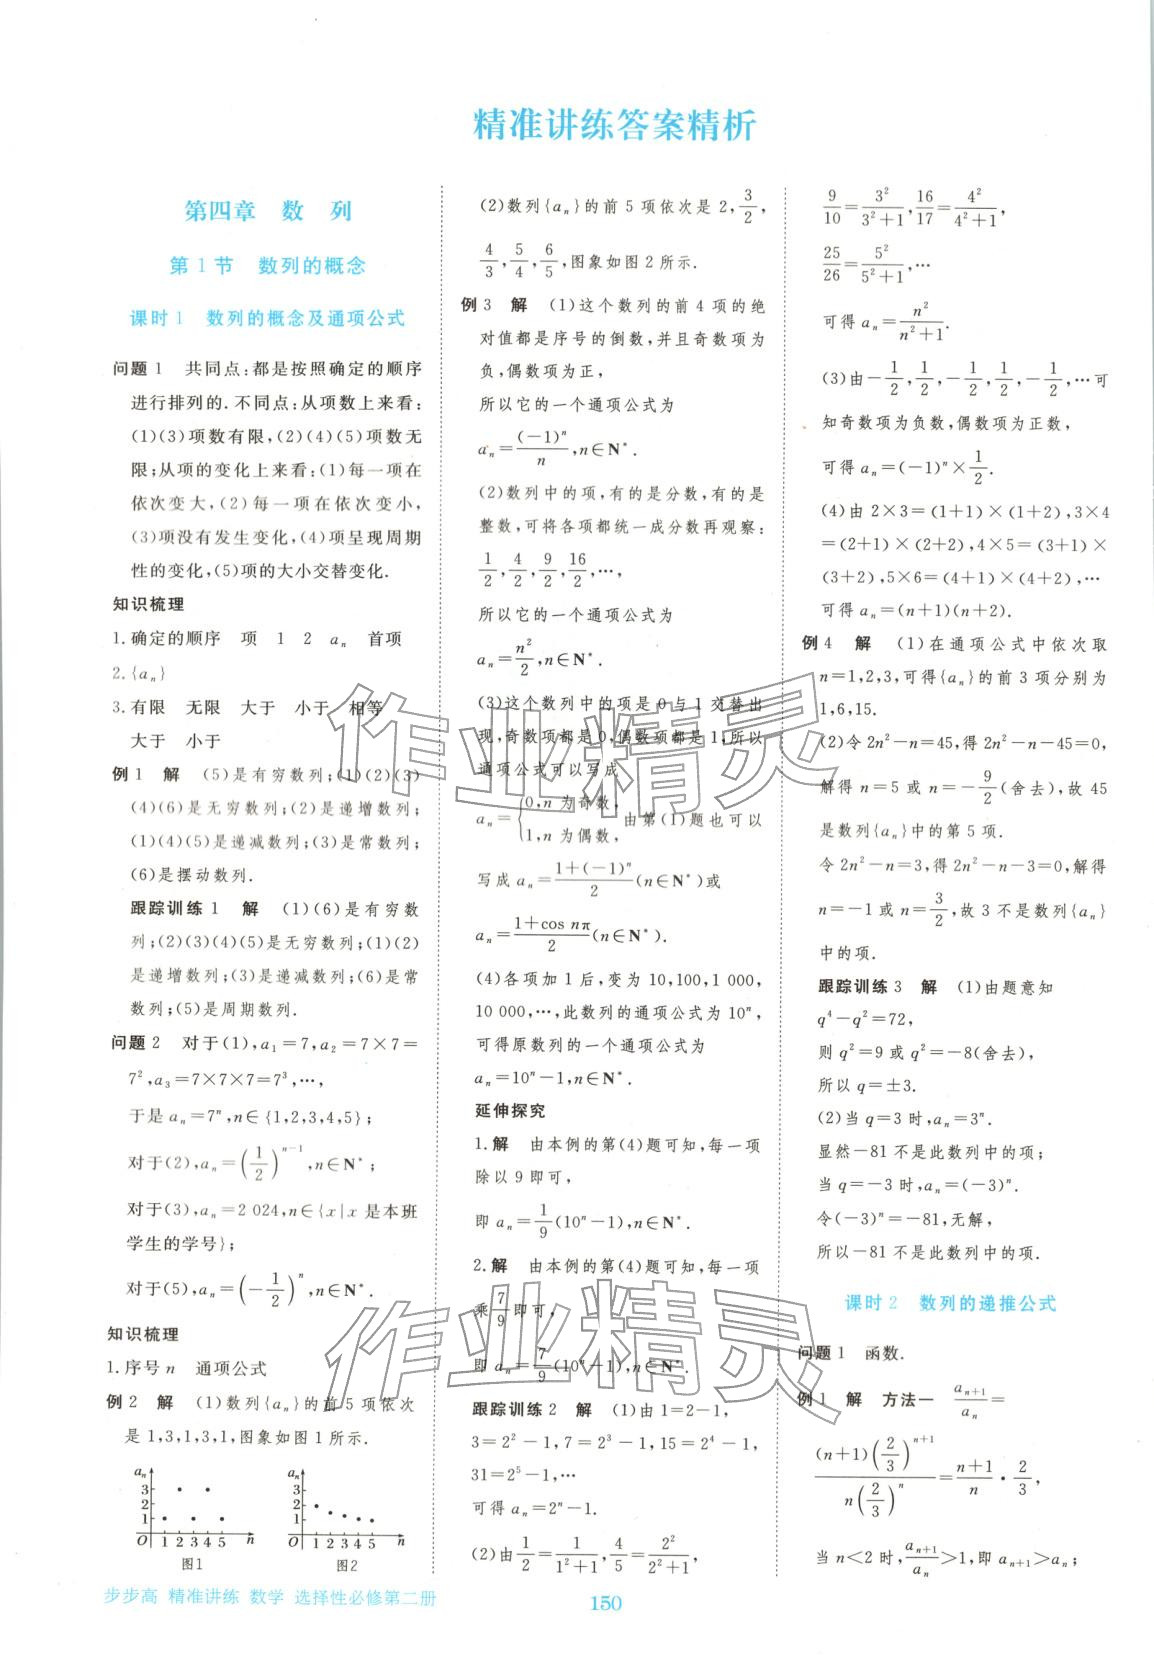 精准讲练答案精析
第四章　数　列
第1节　数列的概念
课时1　数列的概念及通项公式
问题1　共同点:都是按照确定的顺序
进行排列的.不同点:从项数上来看:
(1)(3)项数有限,(2)(4)(5)项数无
限;从项的变化上来看:(1)每一项在
依次变大,(2)每一项在依次变小,
(3)项没有发生变化,(4)项呈现周期
性的变化,(5)项的大小交替变化.
知识梳理
1.确定的顺序　项　1　2　aₙ　首项
2.{aₙ}
3.有限　无限　大于　小于　相等
大于　小于
例1　解　(5)是有穷数列;(1)(2)(3)
(4)(6)是无穷数列;(2)是递增数列;
(1)(4)(5)是递减数列;(3)是常数列;
(6)是摆动数列.
跟踪训练1　解　(1)(6)是有穷数
列;(2)(3)(4)(5)是无穷数列;(1)(2)
是递增数列;(3)是递减数列;(6)是常
数列;(5)是周期数列.
问题2　对于(1),a₁=7,a₂=7×7=
7²,a₃=7×7×7=7³,…,
于是aₙ=7ⁿ,n∈{1,2,3,4,5};
对于(2),aₙ=(1/2)ⁿ⁻¹,n∈N*;
对于(3),aₙ=2 024,n∈{x|x是本班
学生的学号};
对于(5),aₙ=(-1/2)ⁿ,n∈N*.
知识梳理
1.序号n　通项公式
例2　解　(1)数列{aₙ}的前5项依次
是1,3,1,3,1,图象如图1所示.
aₙ
3
2
1
O 1 2 3 4 5 n
图1
aₙ
3
2
1
O 1 2 3 4 5 n
图2
(2)数列{aₙ}的前5项依次是2,3/2,
4/3,5/4,6/5,图象如图2所示.
例3　解　(1)这个数列的前4项的绝
对值都是序号的倒数,并且奇数项为
负,偶数项为正,
所以它的一个通项公式为
aₙ=(-1)ⁿ/n,n∈N*.
(2)数列中的项,有的是分数,有的是
整数,可将各项都统一成分数再观察:
1/2,4/2,9/2,16/2,…,
所以它的一个通项公式为
aₙ=n²/2,n∈N*.
(3)这个数列中的项是0与1交替出
现,奇数项都是0,偶数项都是1,所以
通项公式可以写成
aₙ={0,n为奇数, 1,n为偶数, 由第(1)题也可以
写成aₙ=(1+(-1)ⁿ)/2(n∈N*)或
aₙ=(1+cos nπ)/2(n∈N*).
(4)各项加1后,变为10,100,1 000,
10 000,…,此数列的通项公式为10ⁿ,
可得原数列的一个通项公式为
aₙ=10ⁿ-1,n∈N*.
延伸探究
1.解　由本例的第(4)题可知,每一项
除以9即可,
即aₙ=1/9(10ⁿ-1),n∈N*.
2.解　由本例的第(4)题可知,每一项
乘7/9即可,
即aₙ=7/9(10ⁿ-1),n∈N*.
跟踪训练2　解　(1)由1=2-1,
3=2²-1,7=2³-1,15=2⁴-1,
31=2⁵-1,…
可得aₙ=2ⁿ-1.
(2)由1/2=1/(1²+1),4/5=2²/(2²+1),
9/10=3²/(3²+1),16/17=4²/(4²+1),
25/26=5²/(5²+1),…
可得aₙ=n²/(n²+1).
(3)由-1/2,1/2,-1/2,1/2,-1/2,…可
知奇数项为负数,偶数项为正数,
可得aₙ=(-1)ⁿ×1/2.
(4)由2×3=(1+1)×(1+2),3×4
=(2+1)×(2+2),4×5=(3+1)×
(3+2),5×6=(4+1)×(4+2),…
可得aₙ=(n+1)(n+2).
例4　解　(1)在通项公式中依次取
n=1,2,3,可得{aₙ}的前3项分别为
1,6,15.
(2)令2n²-n=45,得2n²-n-45=0,
解得n=5或n=-9/2(舍去),故45
是数列{aₙ}中的第5项.
令2n²-n=3,得2n²-n-3=0,解得
n=-1或n=3/2,故3不是数列{aₙ}
中的项.
跟踪训练3　解　(1)由题意知
q⁴-q²=72,
则q²=9或q²=-8(舍去),
所以q=±3.
(2)当q=3时,aₙ=3ⁿ.
显然-81不是此数列中的项;
当q=-3时,aₙ=(-3)ⁿ.
令(-3)ⁿ=-81,无解,
所以-81不是此数列中的项.
课时2　数列的递推公式
问题1　函数.
例1　解　方法一　aₙ₊₁/aₙ=
(n+1)(2/3)ⁿ⁺¹/(n(2/3)ⁿ)=(n+1)/n·2/3,
当n<2时,aₙ₊₁/aₙ>1,即aₙ₊₁>aₙ;
步步高 精准讲练 数学 选择性必修第二册
150
作业精灵
作业精灵